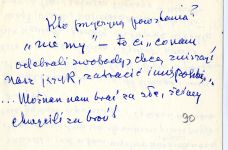 Kto przyczyną powstania?
"nie my" – to ci, co nam
odebrali swobodę, chcą zniszczyć
nasz język, zatracić imię polskie,
... Możnaż nam brać za złe, żeśmy
chwycili za broń?
90